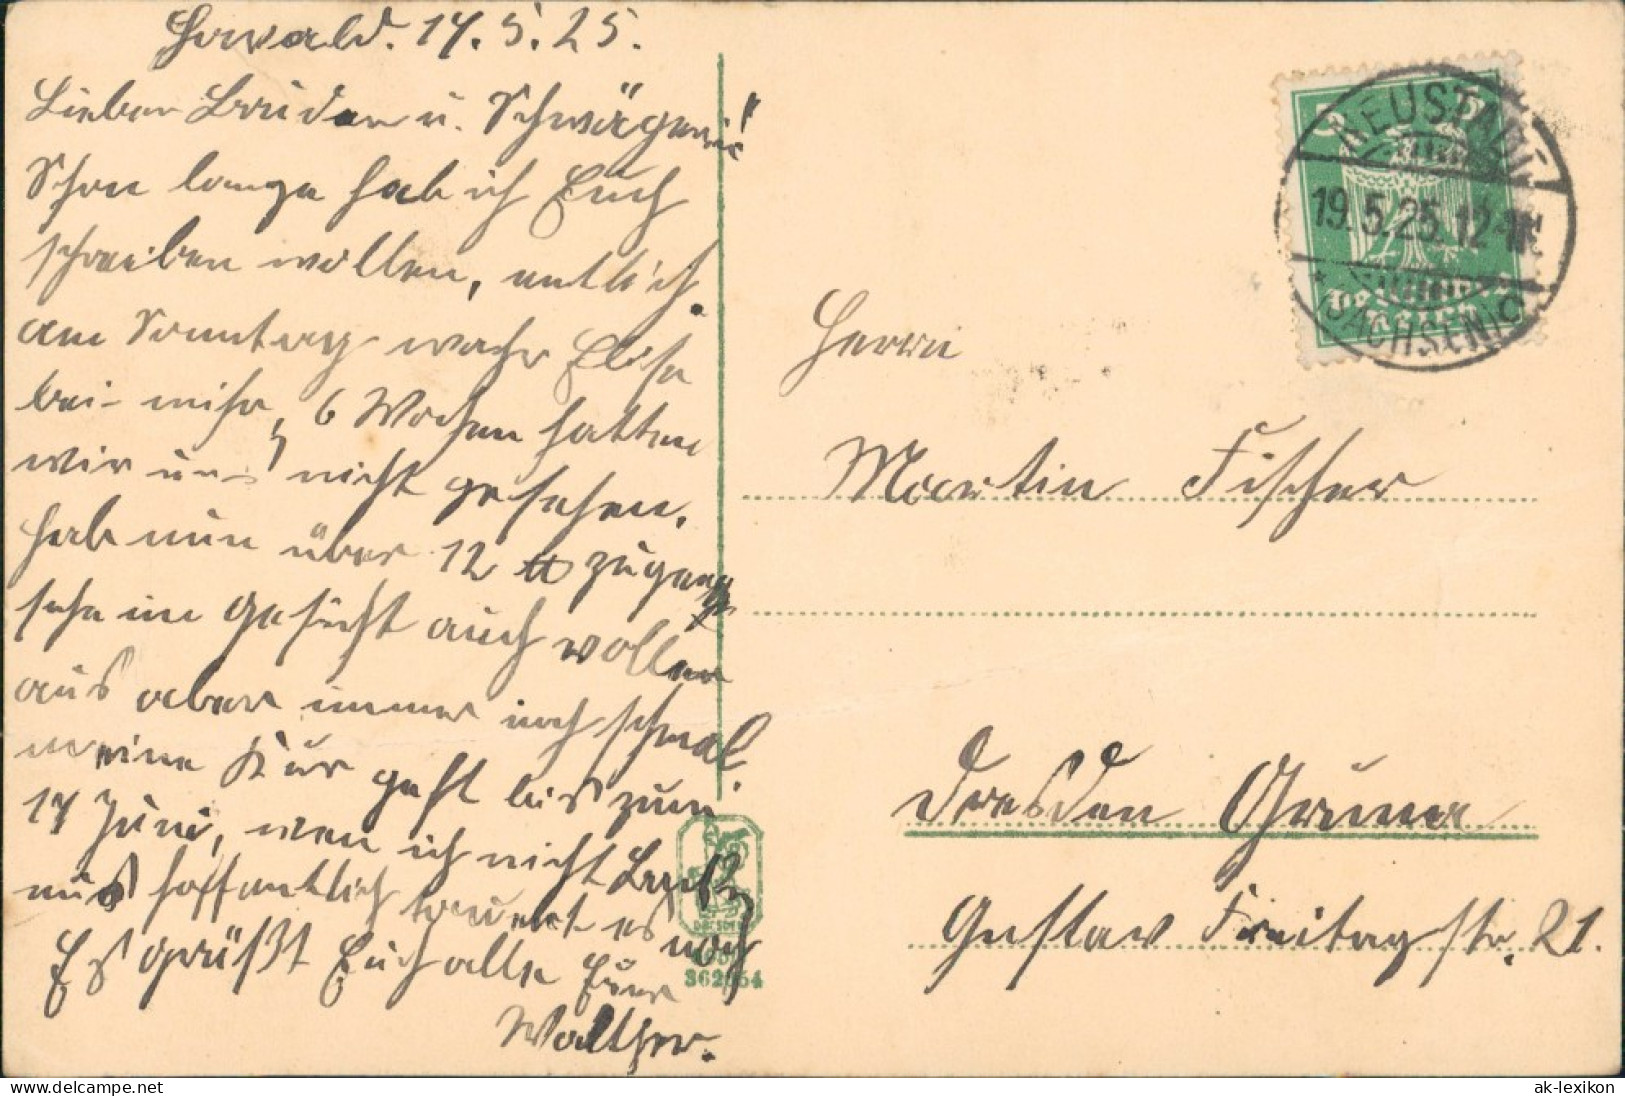 Howald. 17.5.25.
Lieber Bruder u. Schwägerin!
Schon lange hab ich Euch
schreiben wollen, entlich.
am Sonntag wahr Elisa
bei mihr, 6 Wochen hatten
wir uns nicht gesehen.
hab nun über 12 ℔ zugeno
sehe im Gesicht auch voller
aus aber immer noch schmal.
meine Kur geht bis zum
17 Juni, wen ich nicht
muß hoffentlich dauert es noch
Es grüßt Euch alle Euer
Walther.
NEUSTADT
19.5.25.12-1N.
* SACHSEN C
5
Deutsches
Reich
Herrn
Martin Fischer
Dresden Gruna
Gustav Freitagstr. 21.
DRESDEN
362064
www.ak-ansichtskarten.de
ak-lexikon